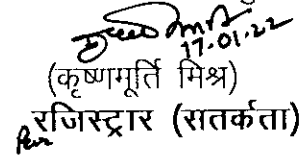 17.01.22
(कृष्णमूर्ति मिश्र)
रजिस्ट्रार (सतर्कता)